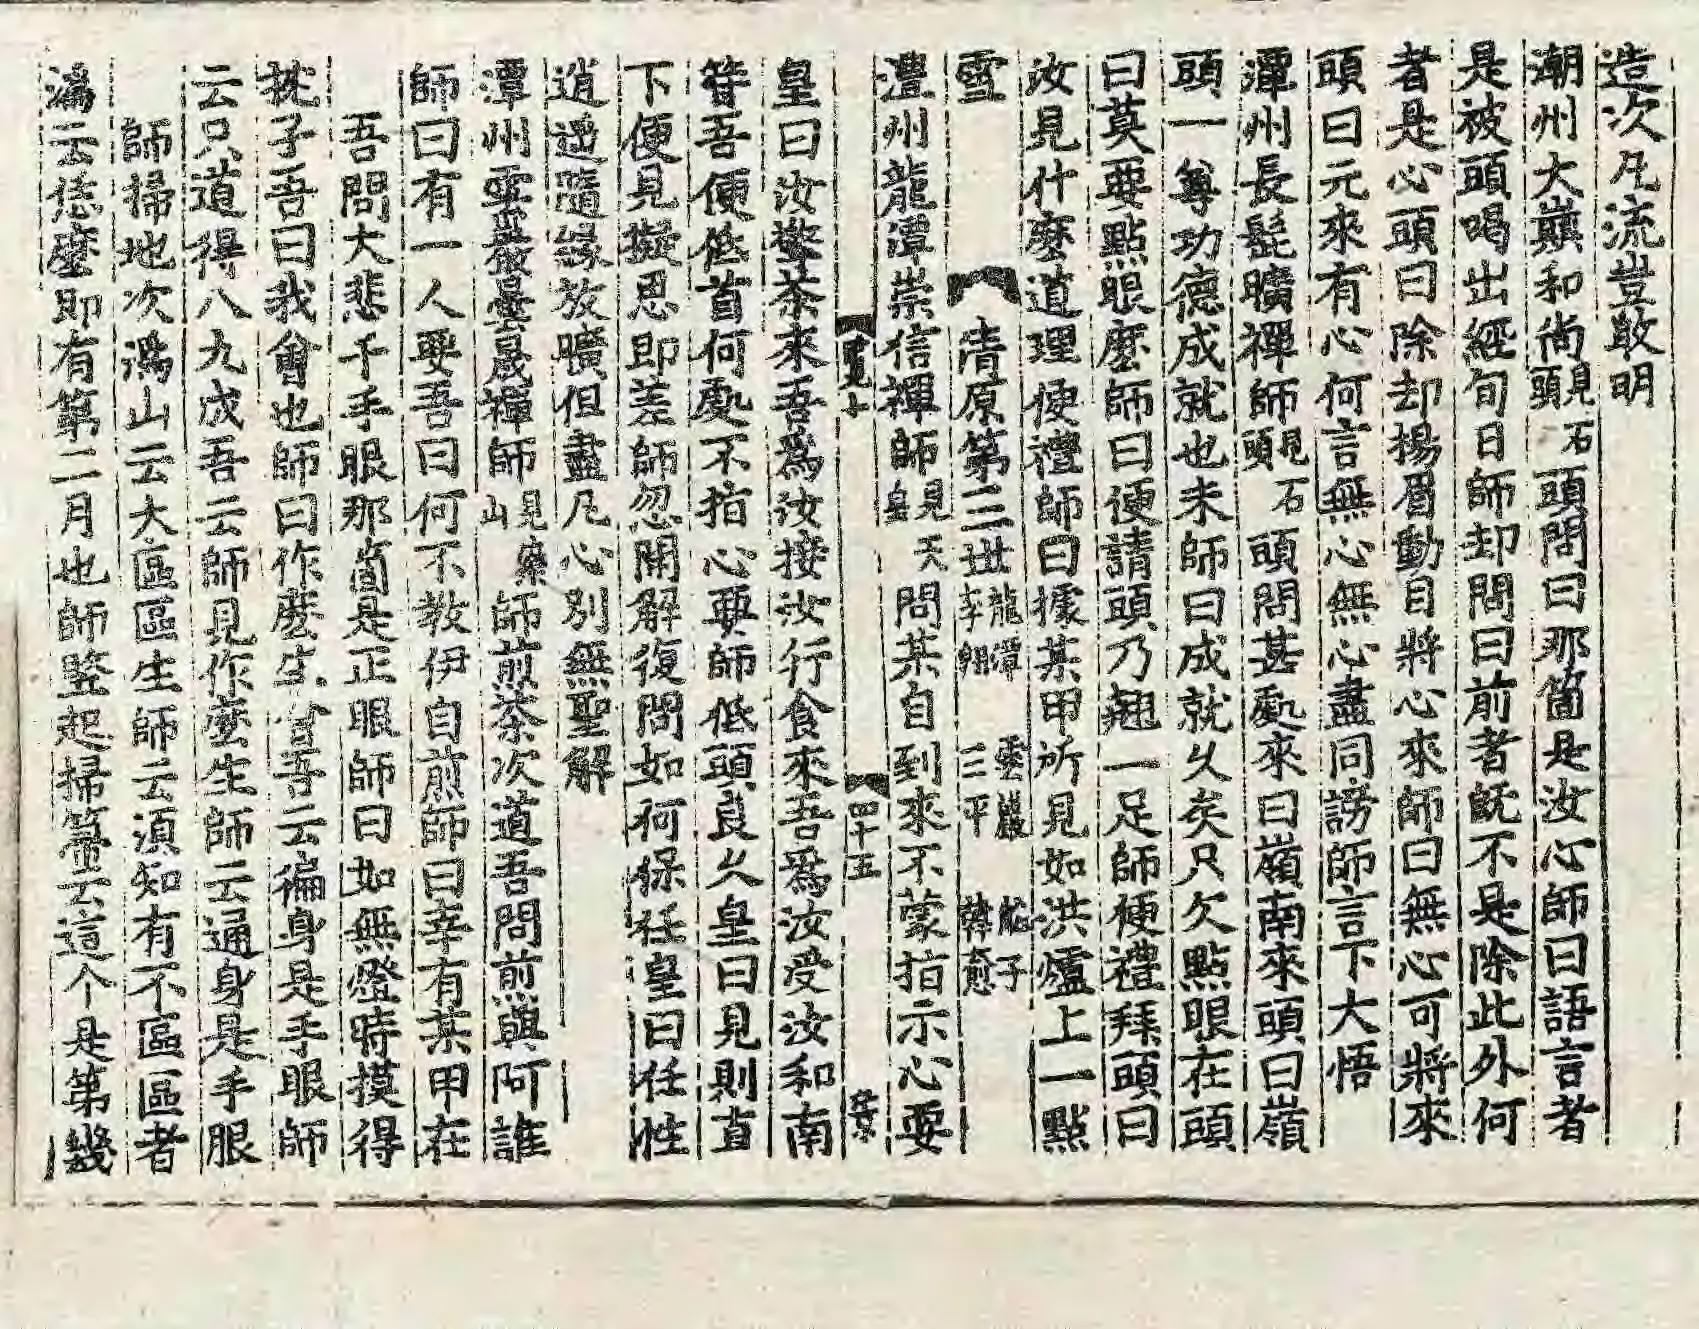 造次凡流豈敢明
潮州大巔和尚見石頭頭問曰那箇是汝心師曰語言者
是被頭喝出經旬日師却問曰前者旣不是除此外何
者是心頭曰除却揚眉動目將心來師曰無心可將來
頭曰元來有心何言無心無心盡同謗師言下大悟
潭州長髭曠禪師見石頭頭問甚處來曰嶺南來頭曰嶺
頭一尊功德成就也未師曰成就久矣只欠點眼在頭
曰莫要點眼麽師曰便請頭乃翹一足師便禮拜頭曰
汝見什麽道理便禮師曰據某甲所見如洪爐上一點
雪
清原第三世龍潭 李翶 雲巖 三平 船子 韓愈
澧州龍潭崇信禪師見天皇問某自到來不蒙指示心要
四十五
皇曰汝擎茶來吾爲汝接汝行食來吾爲汝受汝和南
時吾便低首何處不指心要師低頭良久皇曰見則直
下便見擬思即差師忽開解復問如何保任皇曰任性
逍遥隨緣放曠但盡凡心別無聖解
潭州雲巖曇晟禪師見藥山師煎茶次道吾問煎與阿誰
師曰有一人要吾曰何不教伊自煎師曰幸有某甲在
吾問大悲千手眼那箇是正眼師曰如無燈時摸得
枕子吾曰我會也師曰作麽生會吾云徧身是手眼師
云只道得八九成吾云師見作麽生師云通身是手眼
師掃地次潙山云大區區生師云須知有不區區者
潙云恁麽即有第二月也師竪起掃箒云這个是第幾